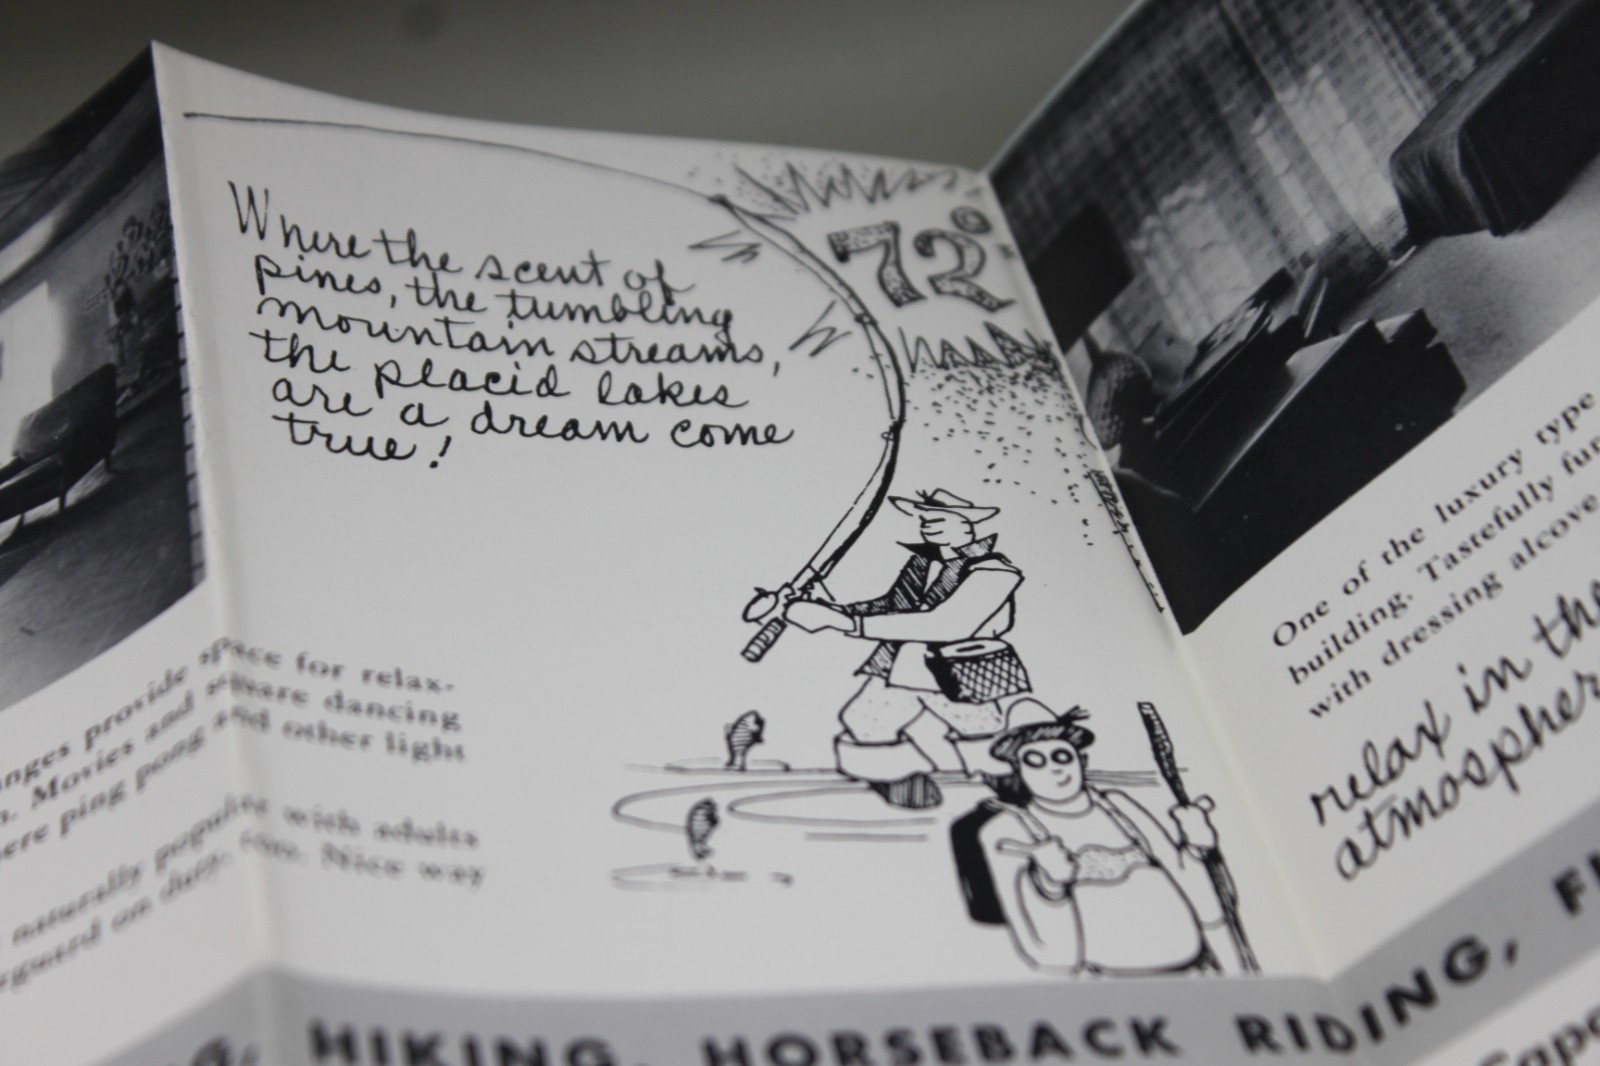 Where the scent of
pines, the tumbling
mountain streams,
the placid lakes
are a dream come
true!
72°
provide space for relax-
Movies and square dancing
ping pong and other light
naturally popular with adults
on duty. Nice way
One of the luxury type
building. Tastefully fur
with dressing alcove
relax in the
atmospher
HIKING, HORSEBACK RIDING, F